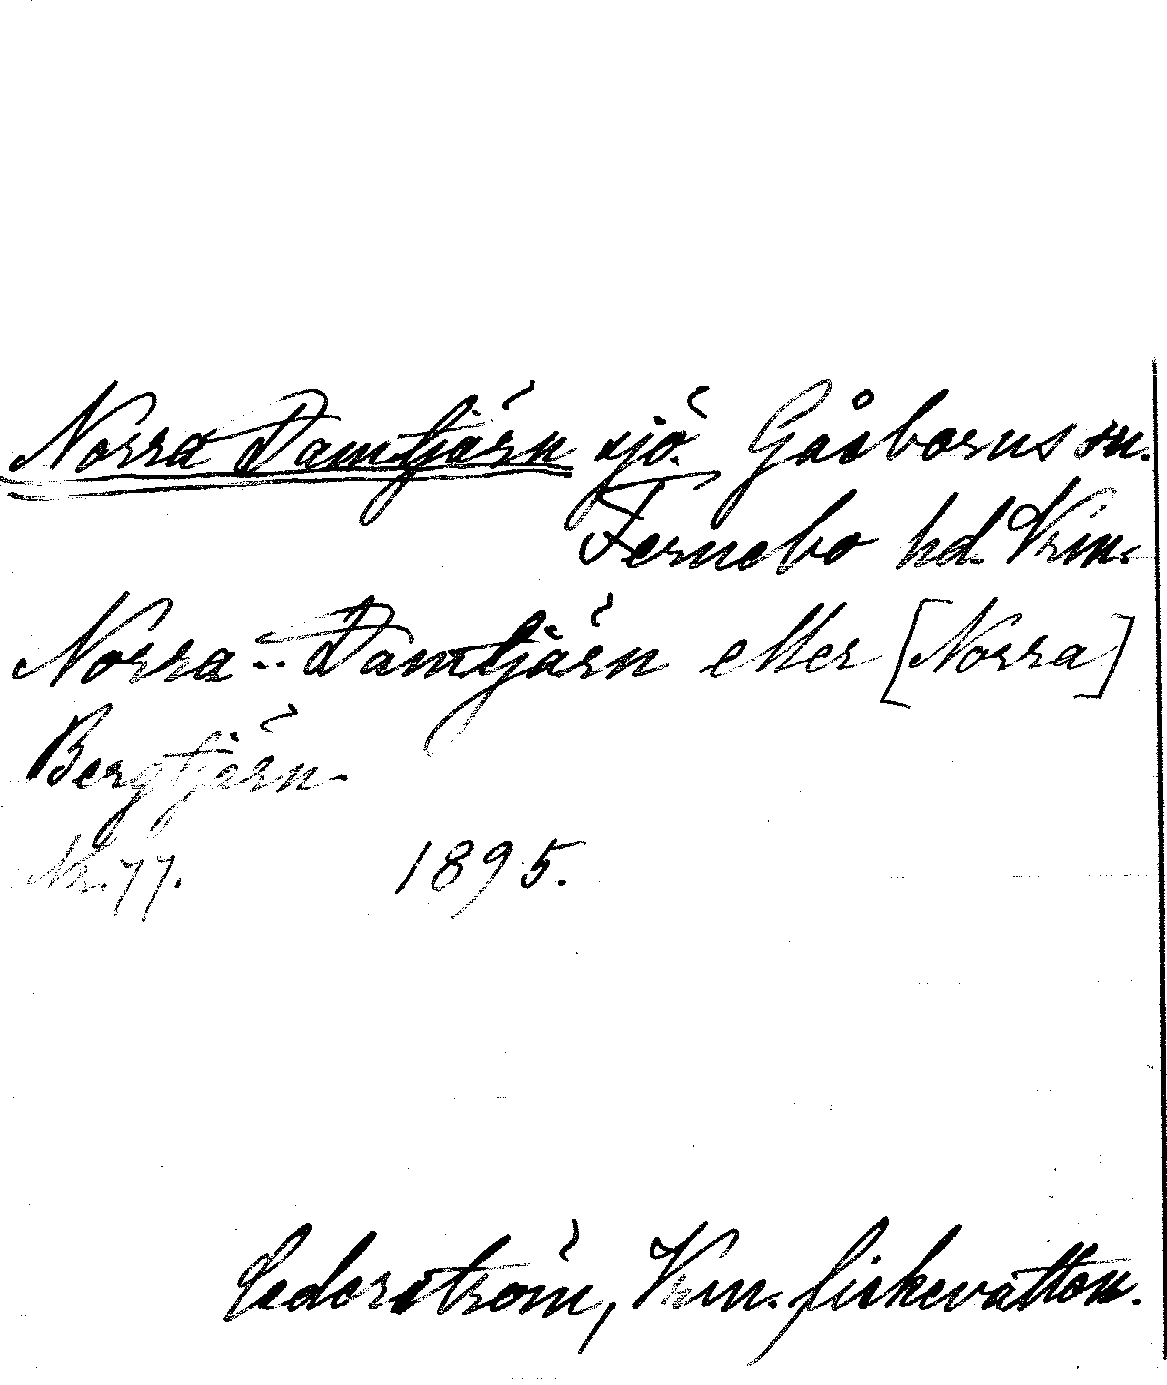 Norra Damtjärn sjö. Gåsborns sn.
Fernebo hd. Vrm.
Norra Damtjärn eller [Norra]
Bergtjärn.
Nr. 77. 1895.
Cederström, Vrm. fiskevatten.